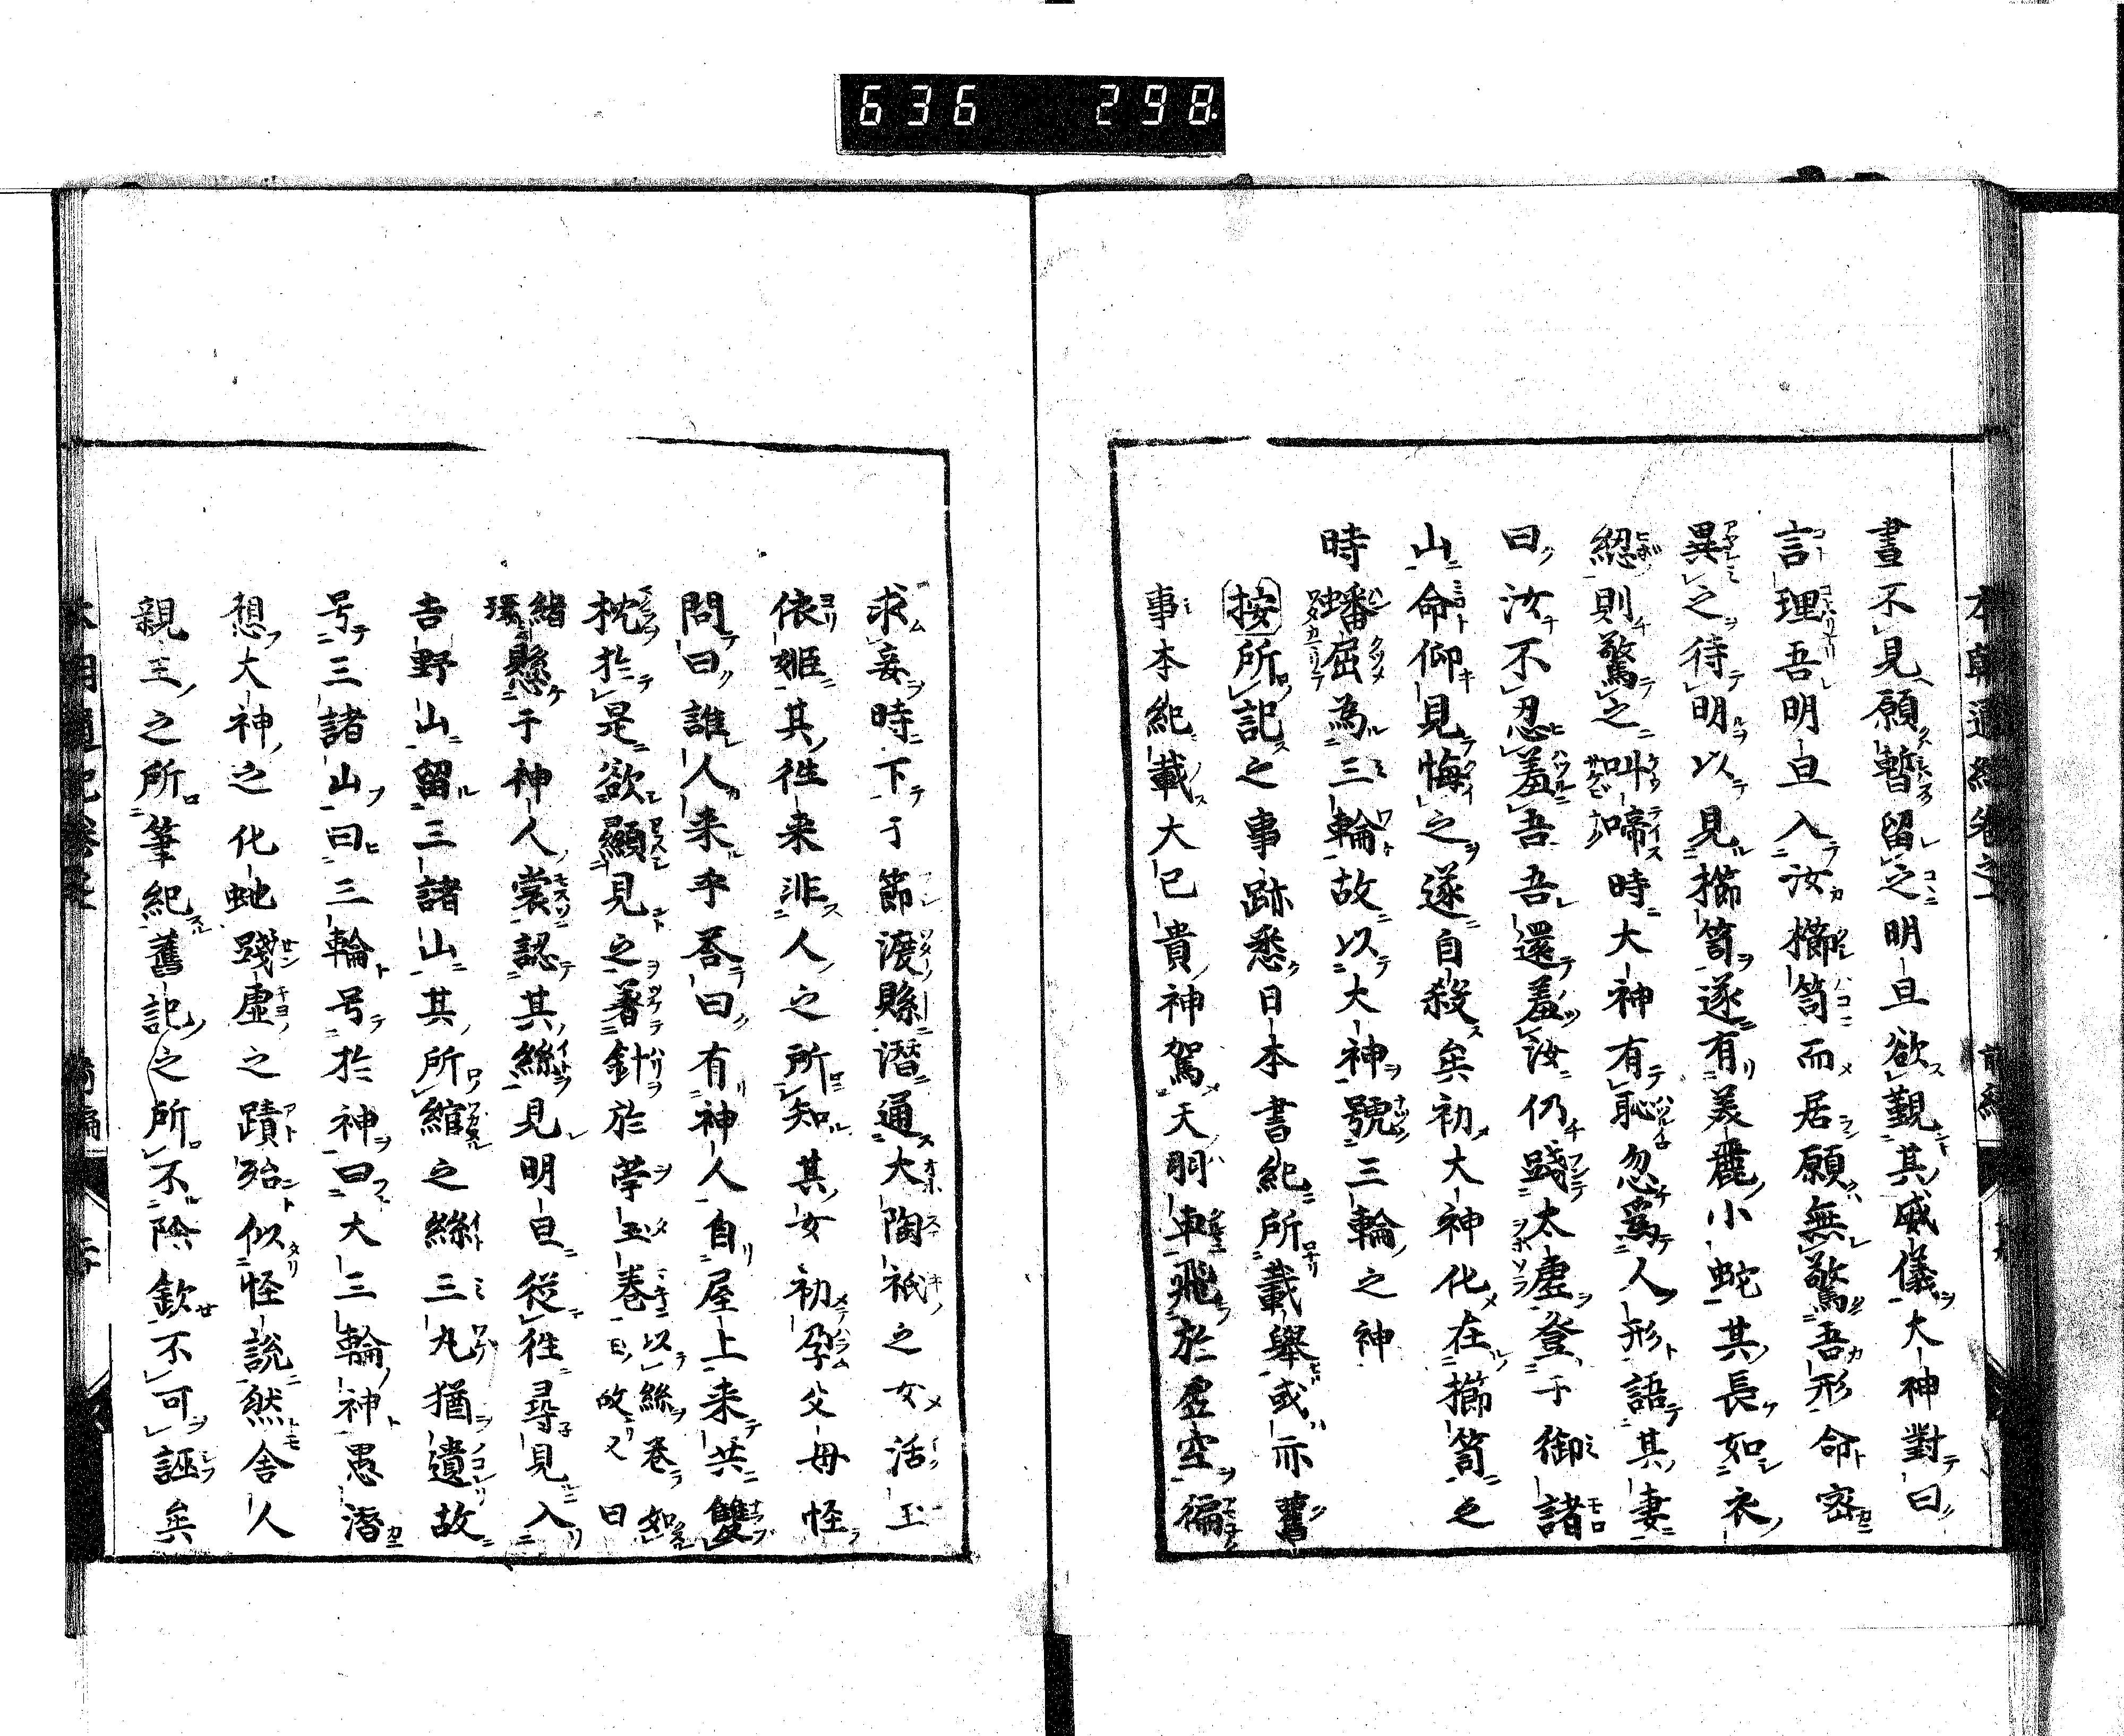 636 298
晝不見願暫留之明旦欲覲其威儀大神對曰
言理吾明旦入汝櫛笥而居願無驚吾形命密
異之待明以見櫛笥遂有美麗小蛇其長如衣
則驚之叫啼時大神有恥忽爲人形語其妻
曰汝不忍羞吾吾還羞汝仍踐太虛登于御諸
山命仰見悔之遂自殺矣初大神化在櫛笥之
時蟠屈為三輪故以大神號三輪之神
按所記之事跡悉日本書紀所載舉或亦舊
事本紀載大己貴神駕天羽車飛於虛空徧
求妾時下于節渡縣潛通大陶祇之女活玉
依姬其徃来非人之所知其女初孕父母怪
問曰誰人来乎荅曰有神人自屋上来共雙
枕於是欲顯見之著針於苧玉卷以絲卷如
曰故又曰
緒環懸于神人裳認其絲見明旦從徃尋見入
吉野山留三諸山其所綰之絲三丸猶遺故
号三諸山曰三輪号於神曰大三輪神愚潛
想大神之化虵踐虛之蹟殆似怪說然舍人
親王之所筆紀舊記之所不除欽不可誣矣